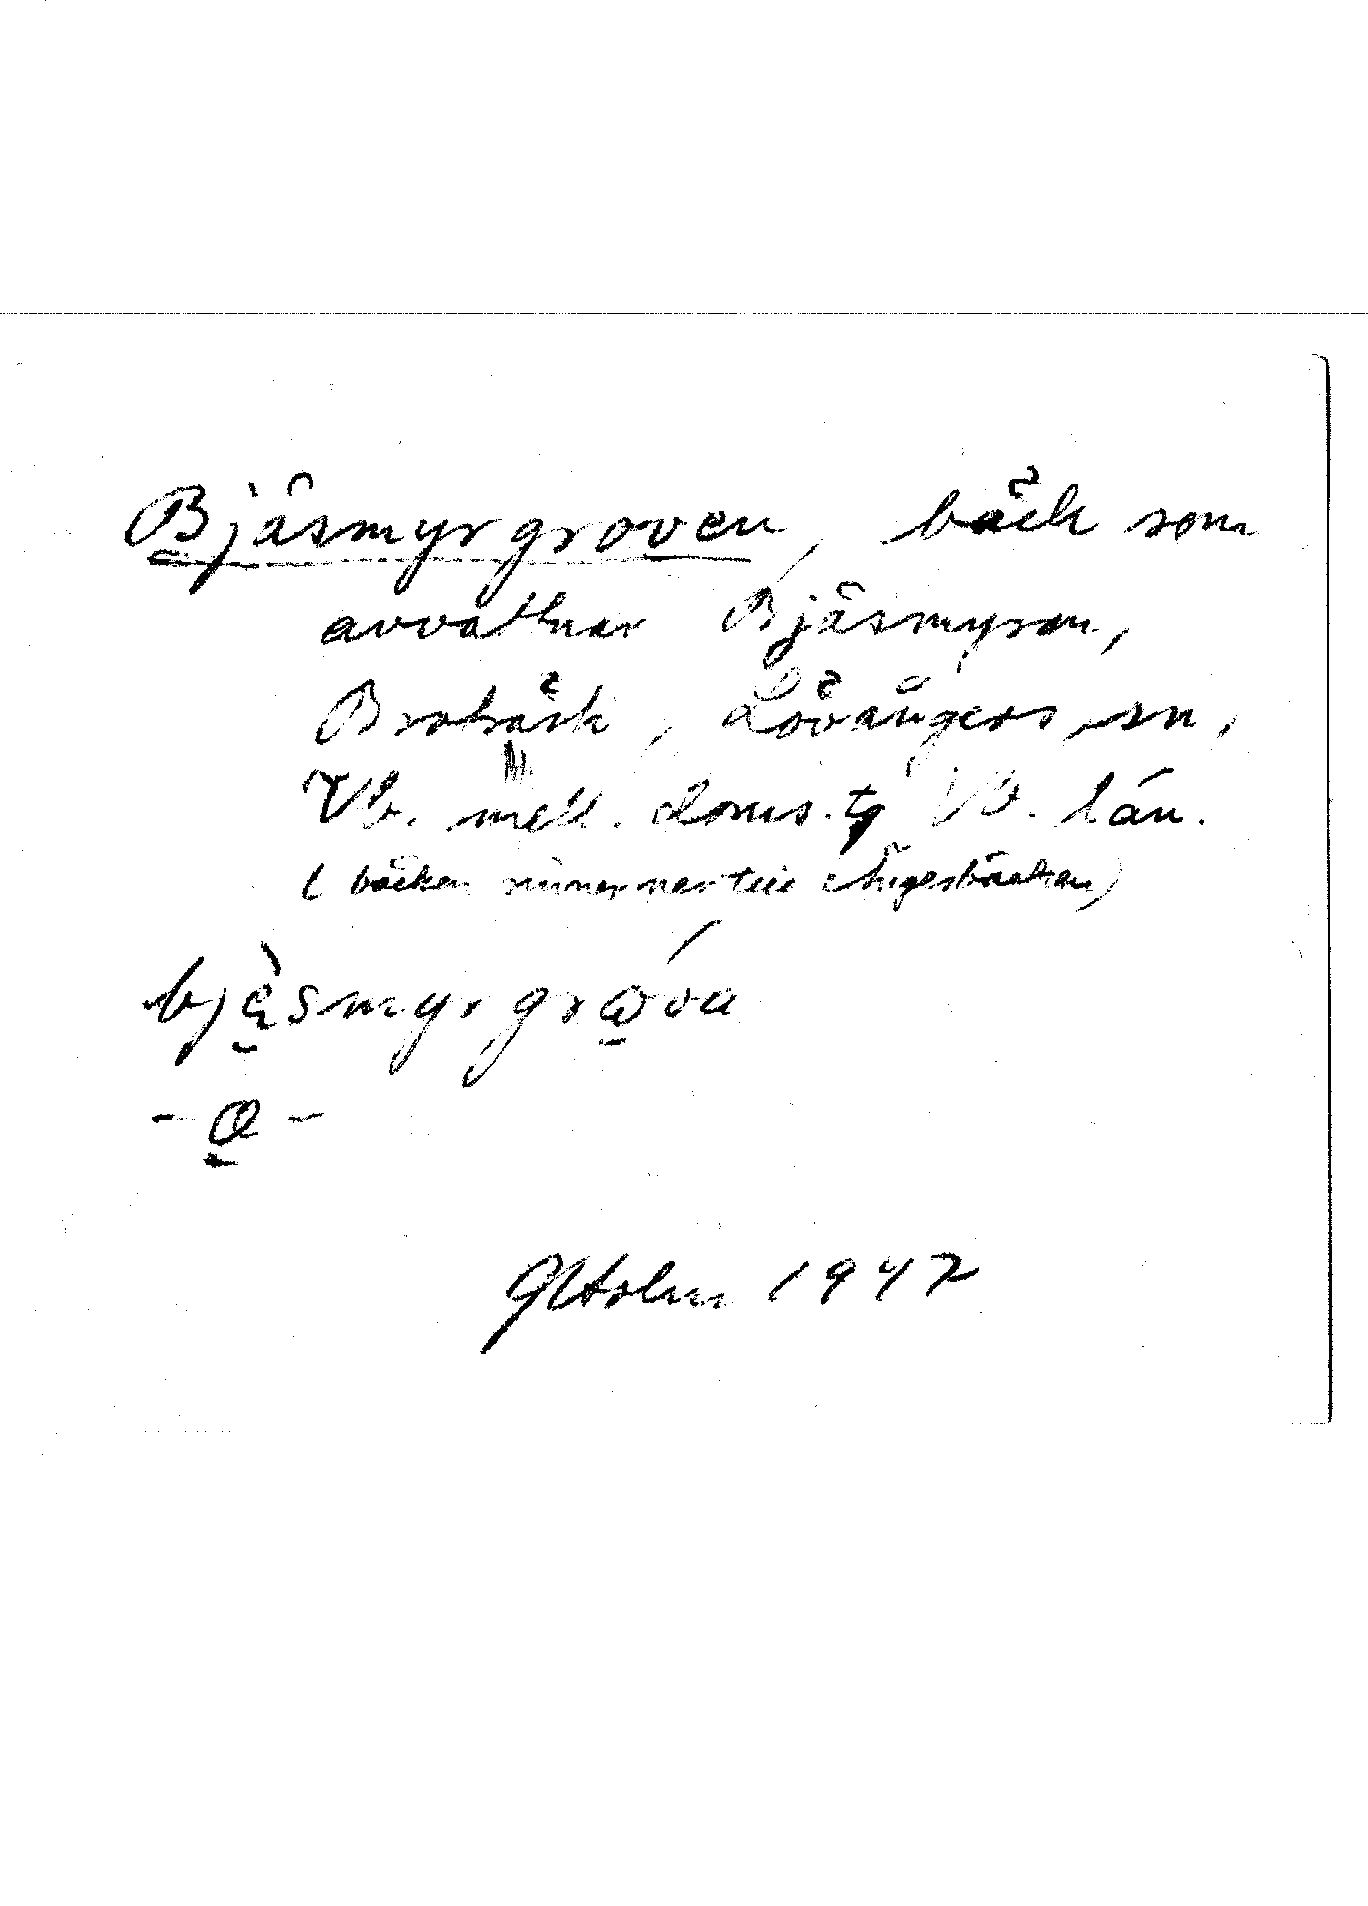 Bjäsmyrgroven, bäck som
avvattnar Bjäsmyran,
Brobäck, Lövångers sn,
Vb. mell. doms. tg Vb. län.
(bäcken rinner ner till Ångesbäcken)
Holm 1947